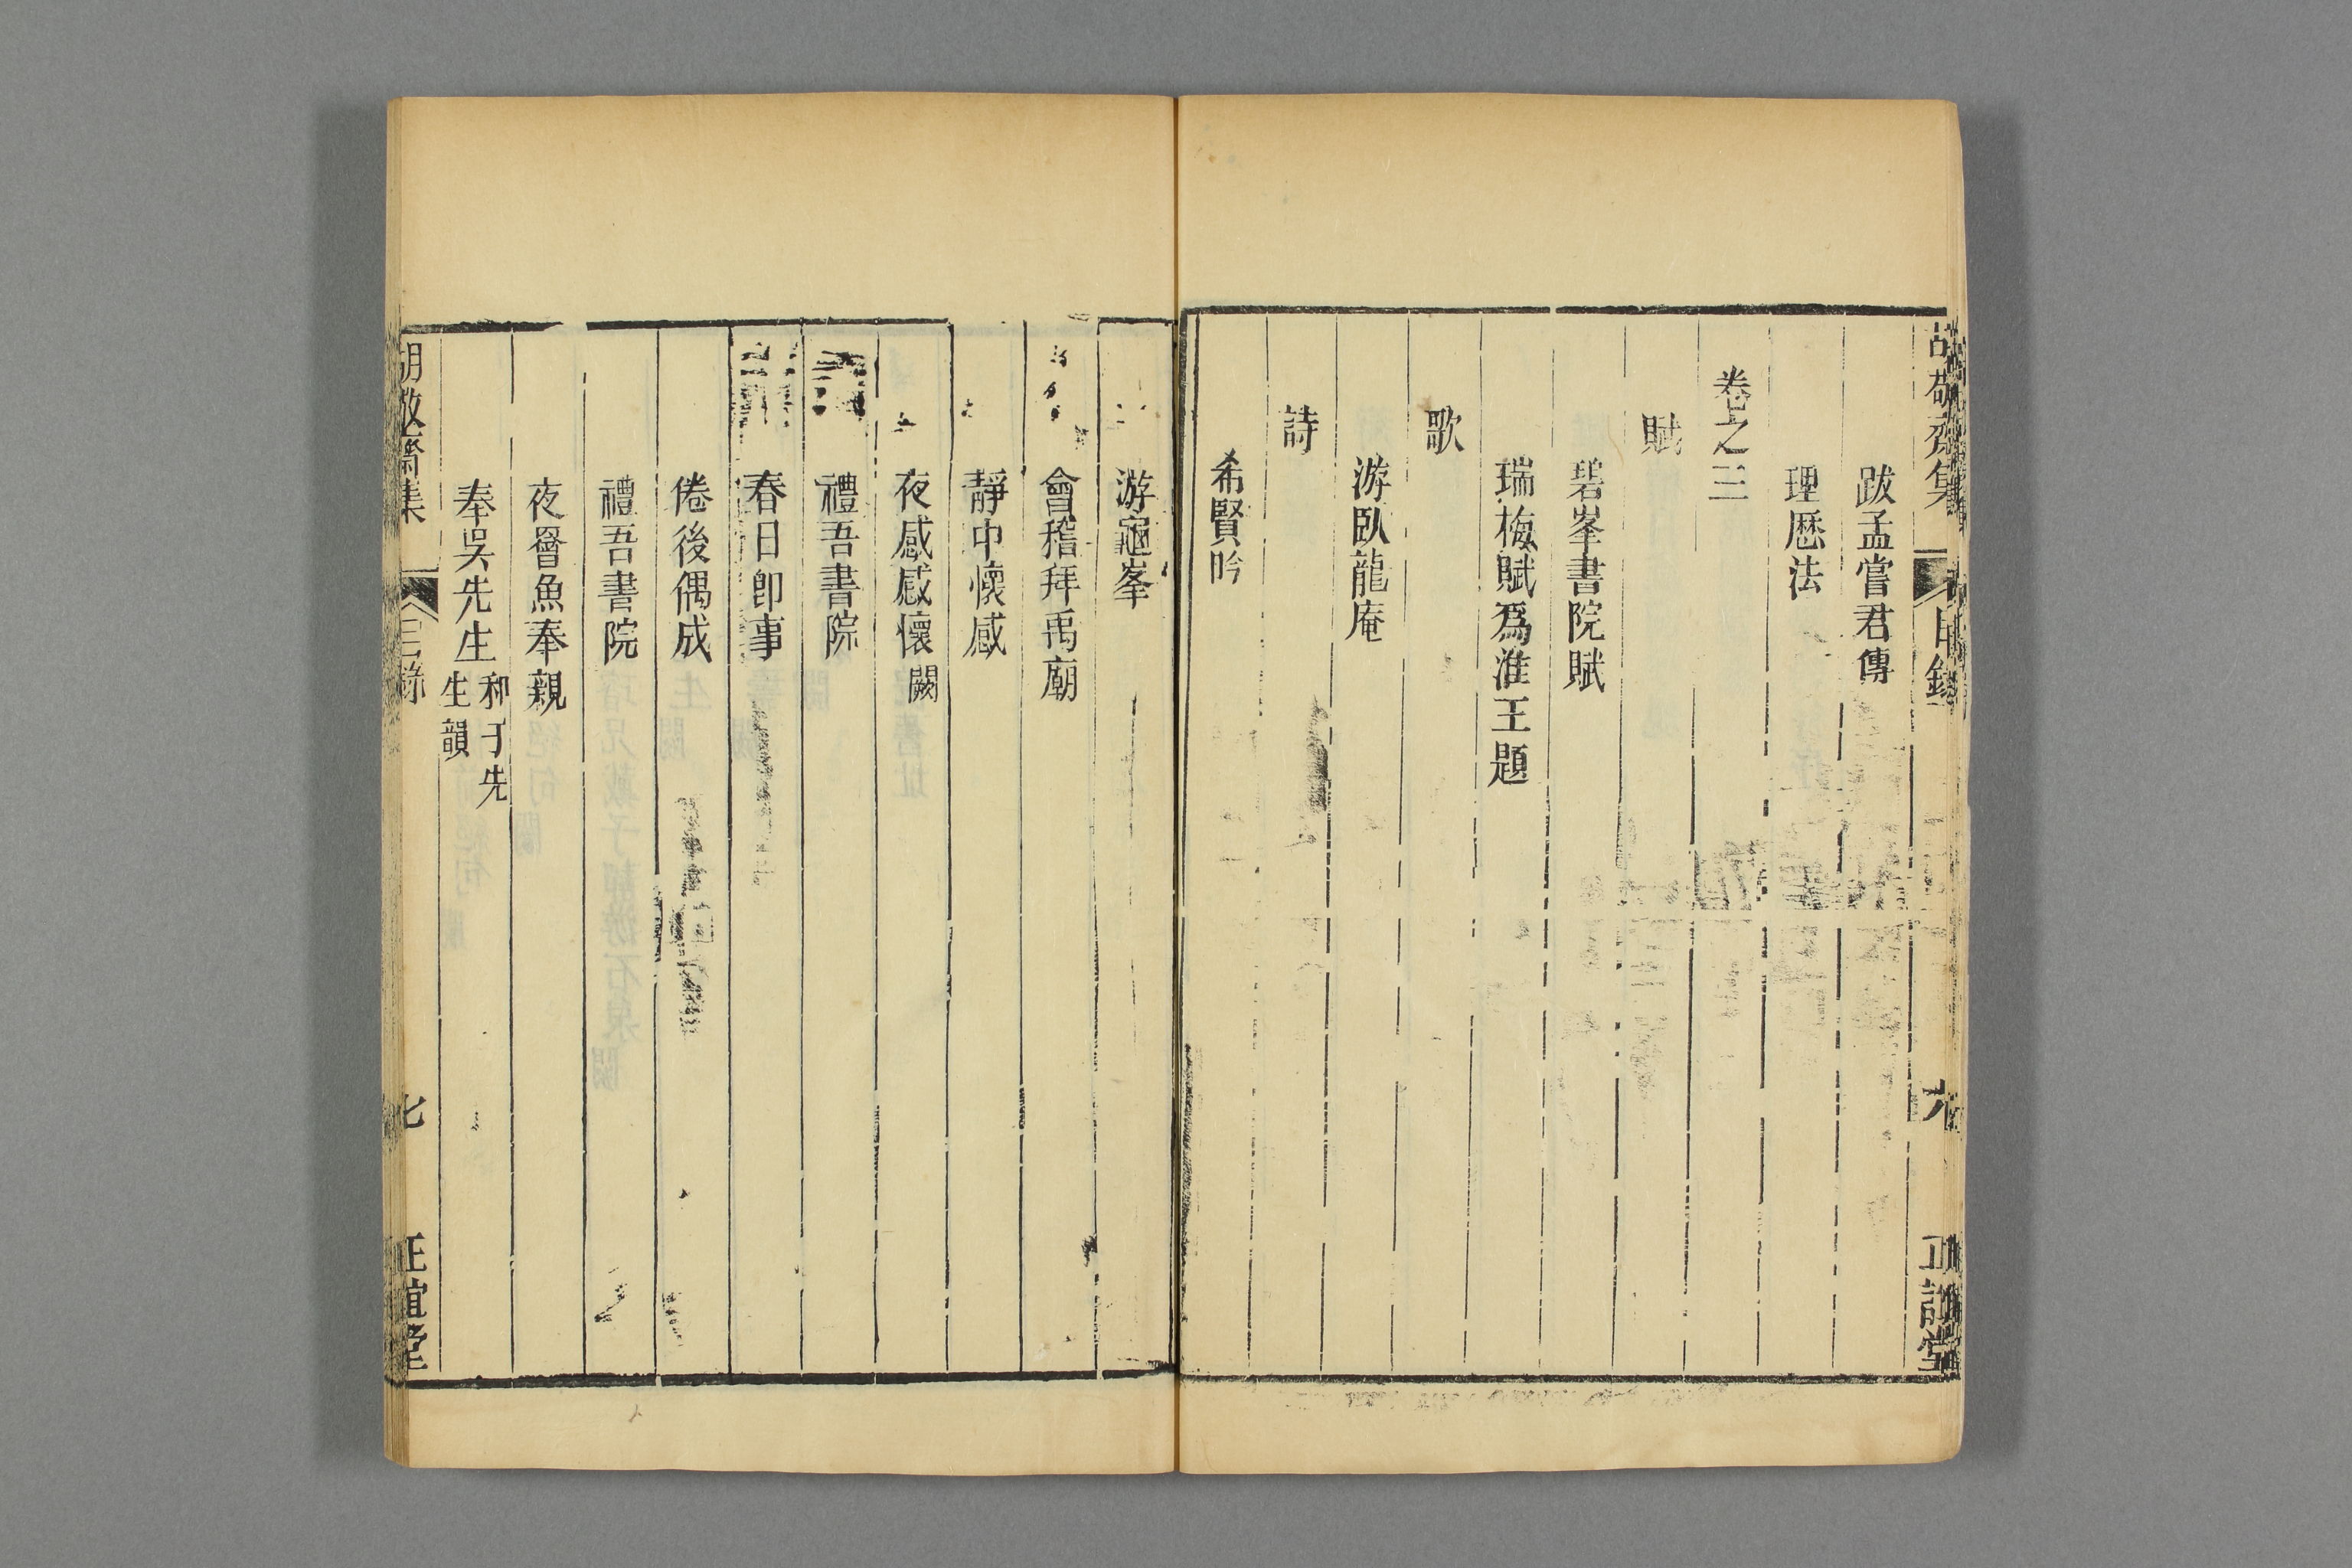 胡敬齋集
目錄
六
正誼堂
跋孟嘗君傳
理厯法
卷之三
賦
碧峯書院賦
瑞梅賦爲淮王題
歌
游臥龍庵
詩
希賢吟
游龜峯
會稽拜禹廟
靜中懷感
夜感感懷闕
禮吾書院
春日卽事
倦後偶成
禮吾書院
夜罾魚奉親
奉吳先生和于先生韻
胡敬齋集
目錄
七
正誼堂